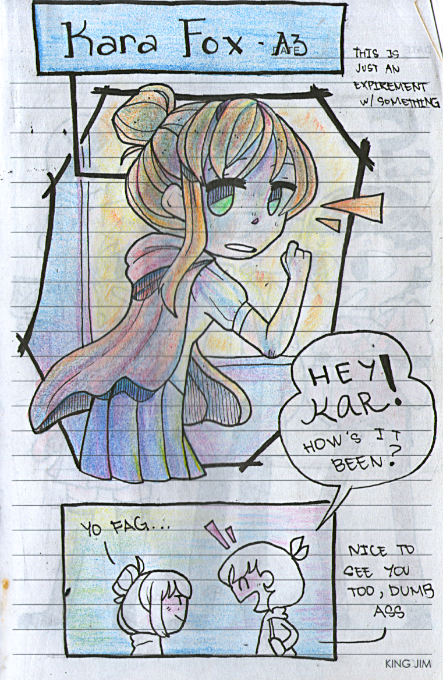 Kara Fox - A3
THIS IS
JUST AN
EXPIREMENT
W/ SOMETHING
HEY
KAR!
HOW'S IT
BEEN?
YO FAG...
NICE TO
SEE YOU
TOO, DUMB
ASS
KING JIM